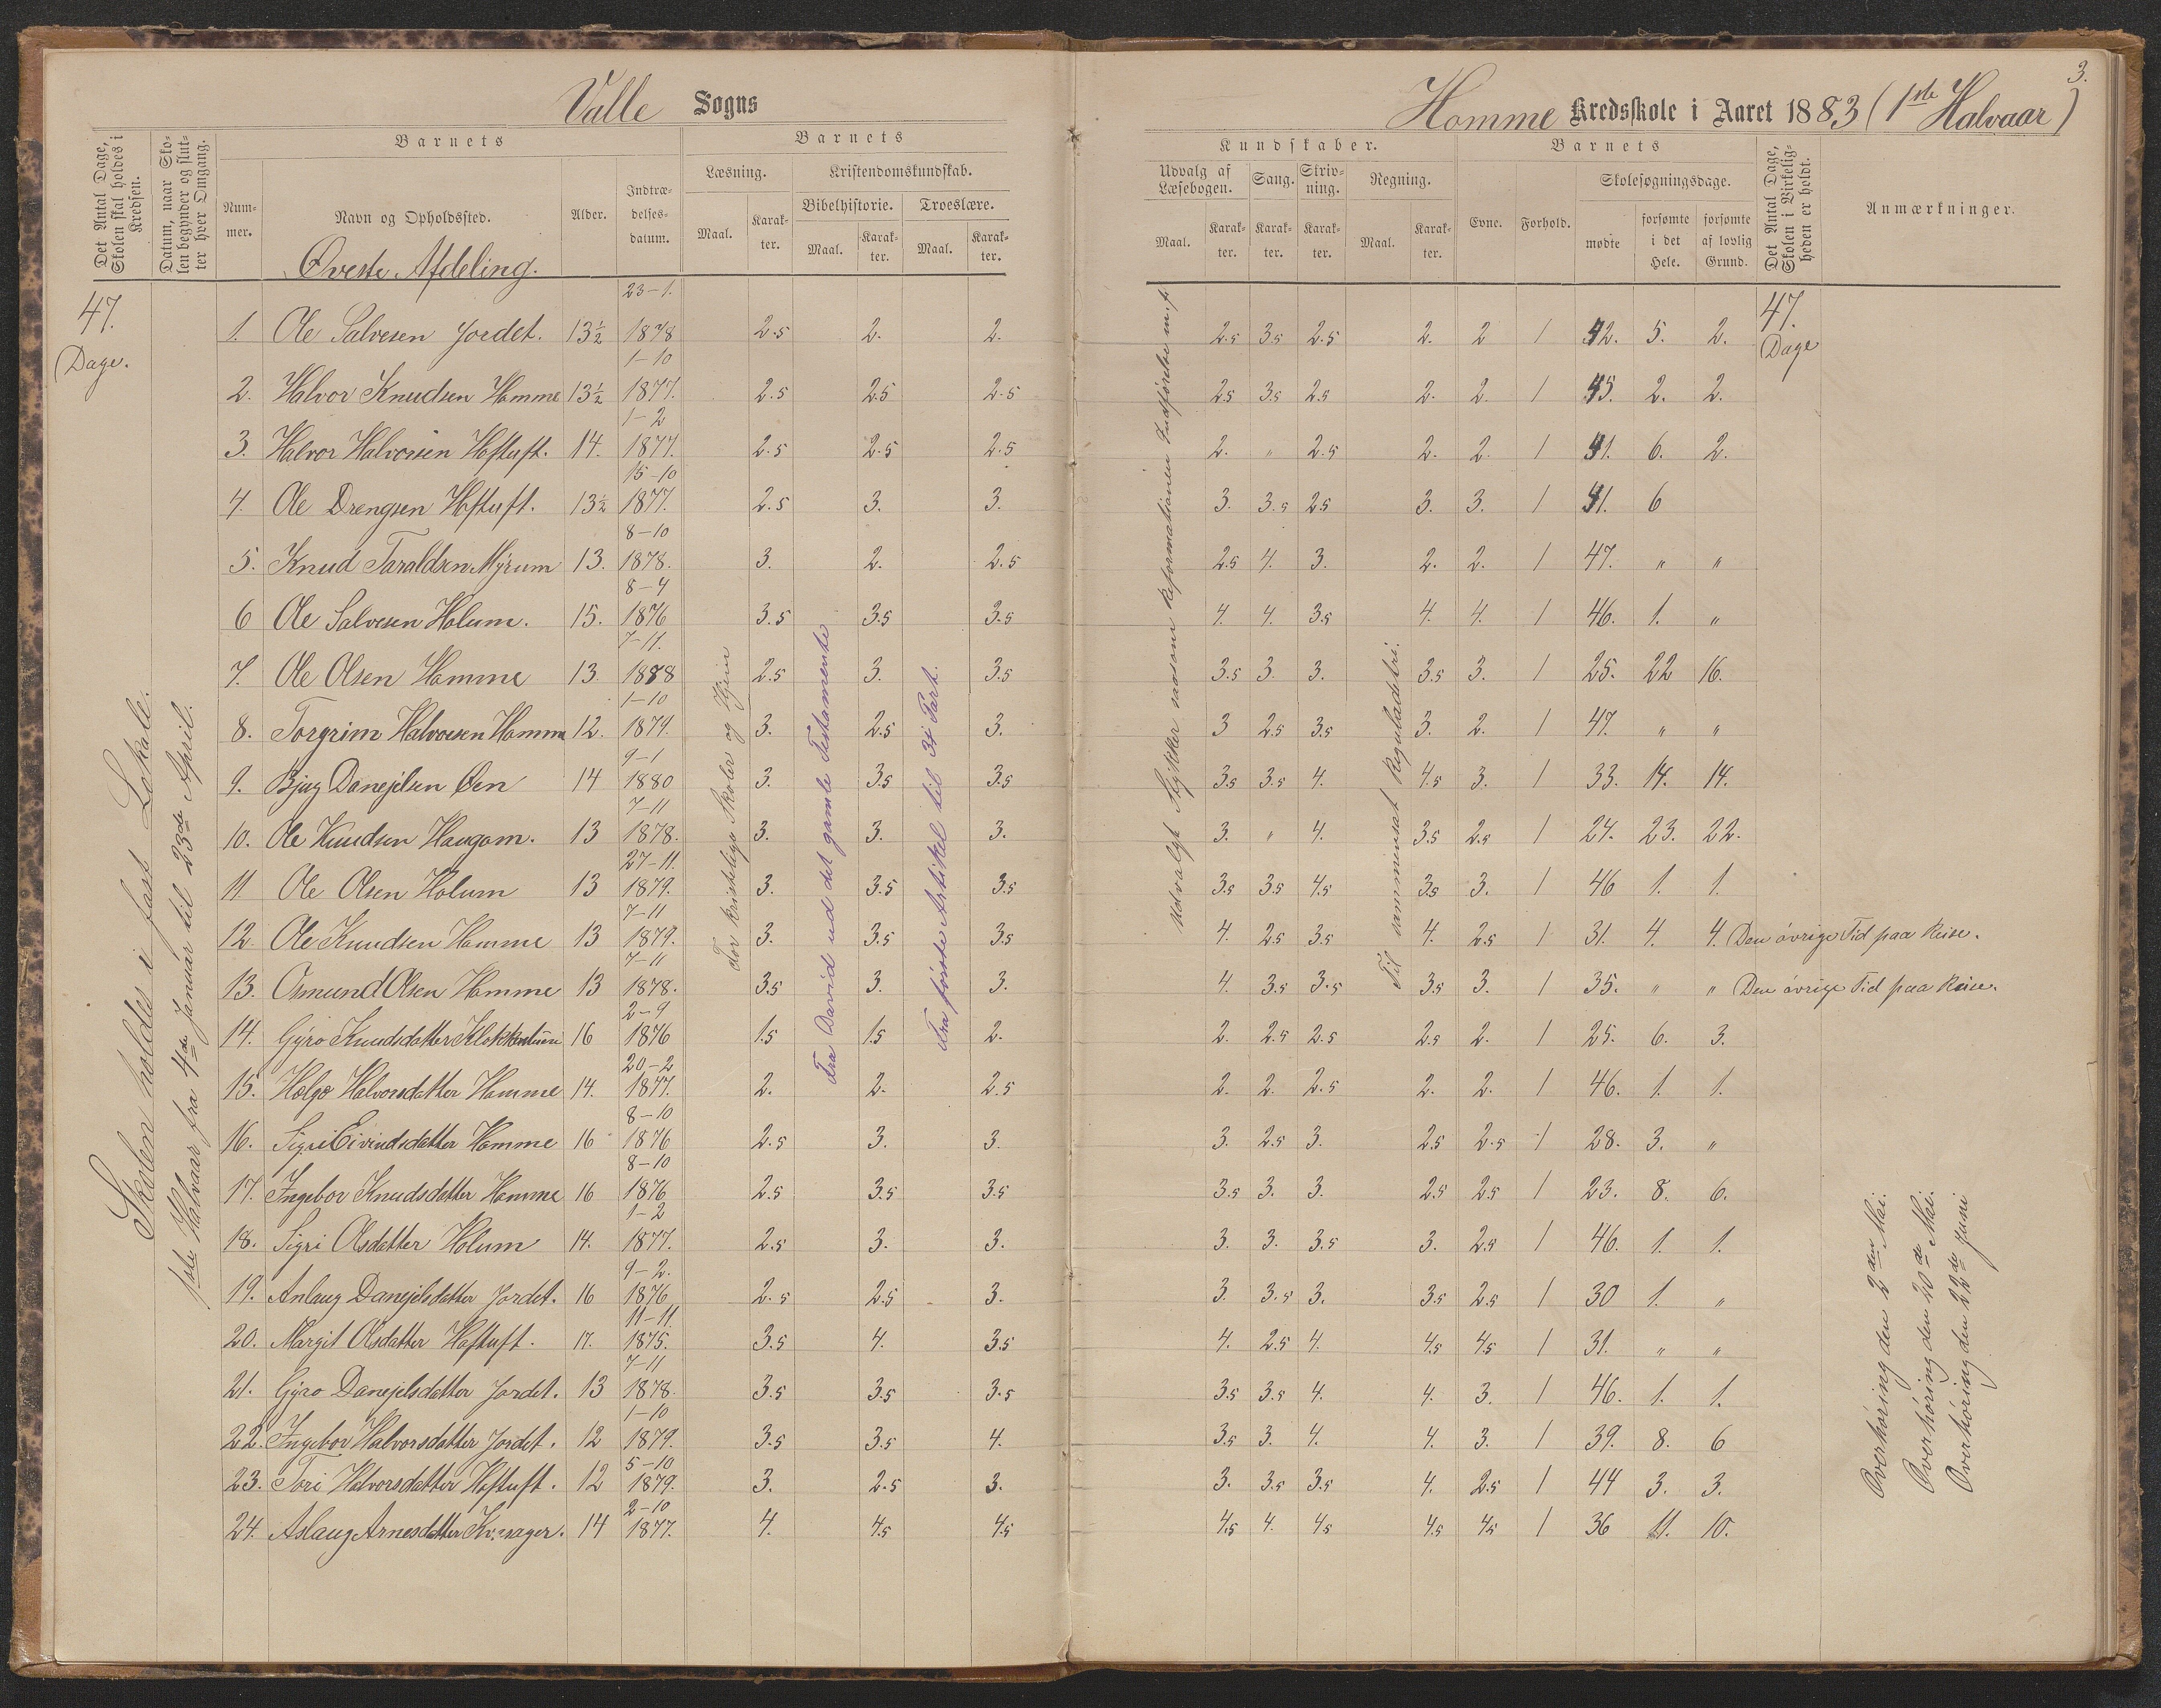 Valle Sogns
Homme Kredsskole i Aaret 1883 (1ste Halvaar)
3.
Det Antal Dage, Skolen skal holdes i Kredsen.
Datum, naar Skolen begynder og slutter hver Omgang.
Barnets
Nummer.
Navn og Opholdssted.
Alder.
Indtrædelsesdatum.
Barnets
Læsning.
Maal.
Karakter.
Kristendomskundskab.
Bibelhistorie.
Maal.
Karakter.
Troeslære.
Maal.
Karakter.
Kundskaber.
Udvalg af Læsebogen.
Maal.
Karakter.
Sang.
Karakter.
Skrivning.
Karakter.
Regning.
Maal.
Karakter.
Barnets
Evne.
Forhold.
Skolesøgningsdage.
mødte
forsømte i det Hele.
forsømte af lovlig Grund.
Det Antal Dage, Skolen i Virkeligheden er holdt.
Anmærkninger.
Øverste Afdeling.
47. Dage.
47. Dage
Skolen holdes i fast Lokale.
1ste Halvaar fra 4de Januar til 23de April.
For kristelige Skoler og Hjem
Fra David ud det gamle Testamente
Fra første Artikel til 3die Part.
Udvalgt Stykker saasom Reformationen Indførelse m.fr
Til sammensat Reguladetri.
1. Ole Salvesen Jordet. 13½ 23-1. 1878 2.5 2. 2. 2.5 3.5 2.5 2. 2 1 42. 5. 2.
2. Halvor Knudsen Homme 13½ 1-10 1877. 2.5 2.5 2.5 2.5 3.5 2.5 2. 2. 1 45. 2. 2.
3. Halvor Halvorsen Hoftuft. 14. 1-2 1877. 2.5 2.5 2.5 2. " 2.5 2. 2. 1 41. 6. 2.
4. Ole Drengsen Hoftuft. 13½ 15-10 1877. 2.5 3. 3. 3. 3.5 2.5 3. 3. 1 41. 6
5. Knud Taraldsen Myrum 13. 8-10 1878. 3. 2. 2.5 2.5 4. 3. 2. 2. 1 47. " "
6 Ole Salvesen Holum. 15. 8-4 1876 3.5 3.5 3.5 4. 4. 3.5 4. 4. 1 46. 1. "
7. Ole Olsen Homme 13 7-11. 1878 2.5 3. 3.5 3.5 3. 3. 3.5 3. 1 25. 22 16.
8. Torgrim Halvorsen Homme 12. 1-10 1879. 3. 2.5 3. 3 2.5 3.5 3. 2. 1 47. " "
9. Bjug Danejelsen Øen 14 9-1 1880 3. 3.5 3.5 3.5 3.5 4. 4.5 3. 1 33. 14. 14.
10. Ole Knudsen Haugom. 13 7-11 1878. 3. 3. 3. 3. " 4. 3.5 2.5 1 24. 23. 22.
11. Ole Olsen Holum 13 27-11. 1879. 3. 3.5 3.5 3.5 3.5 4.5 3.5 3. 1 46 1. 1.
12. Ole Knudsen Homme 13 7-11 1879. 3. 3.5 3.5 4. 2.5 3.5 4. 2.5 1 31. 4. 4. Den øvrige Tid paa Reise.
13. Osmund Olsen Homme 13 7-11 1878. 3.5 3. 3. 4. 3.5 3.5 3.5 3. 1 35. " " Den øvrige Tid paa Reise.
14. Gyro Knudsdatter 16 2-9 1876 1.5 1.5 2. 2. 2.5 2.5 2.5 2. 1 25. 6. 3.
15. Helge Halvorsdatter Homme 14. 20-2 1877. 2. 2. 2.5 2. 2. 2.5 2. 2. 1 46. 1. 1.
16. Sigri Eivindsdatter Homme 16 8-10 1876 2.5 3. 3. 3. 2.5 3. 2.5 2.5 1 28. 3. "
17. Ingebor Knudsdatter Homme 16 8-10 1876 2.5 3.5 3.5 3.5 3. 3. 2.5 2.5 1 23. 8. 6.
18. Sigri Olsdatter Holum 14. 1-2 1877. 2.5 3. 3. 3. 3. 3.5 3. 2.5 1 46. 1. 1.
19. Anlaug Danejelsdatter Jordet. 16 9-2. 1876 2.5 2.5 3. 3. 3.5 3. 3.5 2.5 1 30 1. "
20. Margit Olsdatter Hoftuft. 17. 11-11. 1875. 3.5 4. 3.5 4. 2.5 4. 4.5 4.5 1 31. " "
21. Gyro Danejelsdatter Jordet. 13 7-11 1878. 3.5 3.5 3.5 3.5 3.5 4. 4. 3. 1 46. 1. 1.
22. Ingebor Halvorsdatter Jordet. 12 1-10 1879. 3.5 3.5 4. 3.5 3. 4. 4. 3. 1 39. 8. 6
23. Tori Halvorsdatter Hoftuft. 12 5-10 1879. 3. 2.5 3. 3. 3.5 3.5 4. 2.5 1 44 3. 3.
24. Aslaug Arnesdatter 14 2-10 1877. 4. 4.5 4.5 4.5 4. 4.5 4.5 4.5 1 36 11. 10.
Overhøring den 2den Mai.
Overhøring den 20de Mai.
Overhøring den 22de Juni